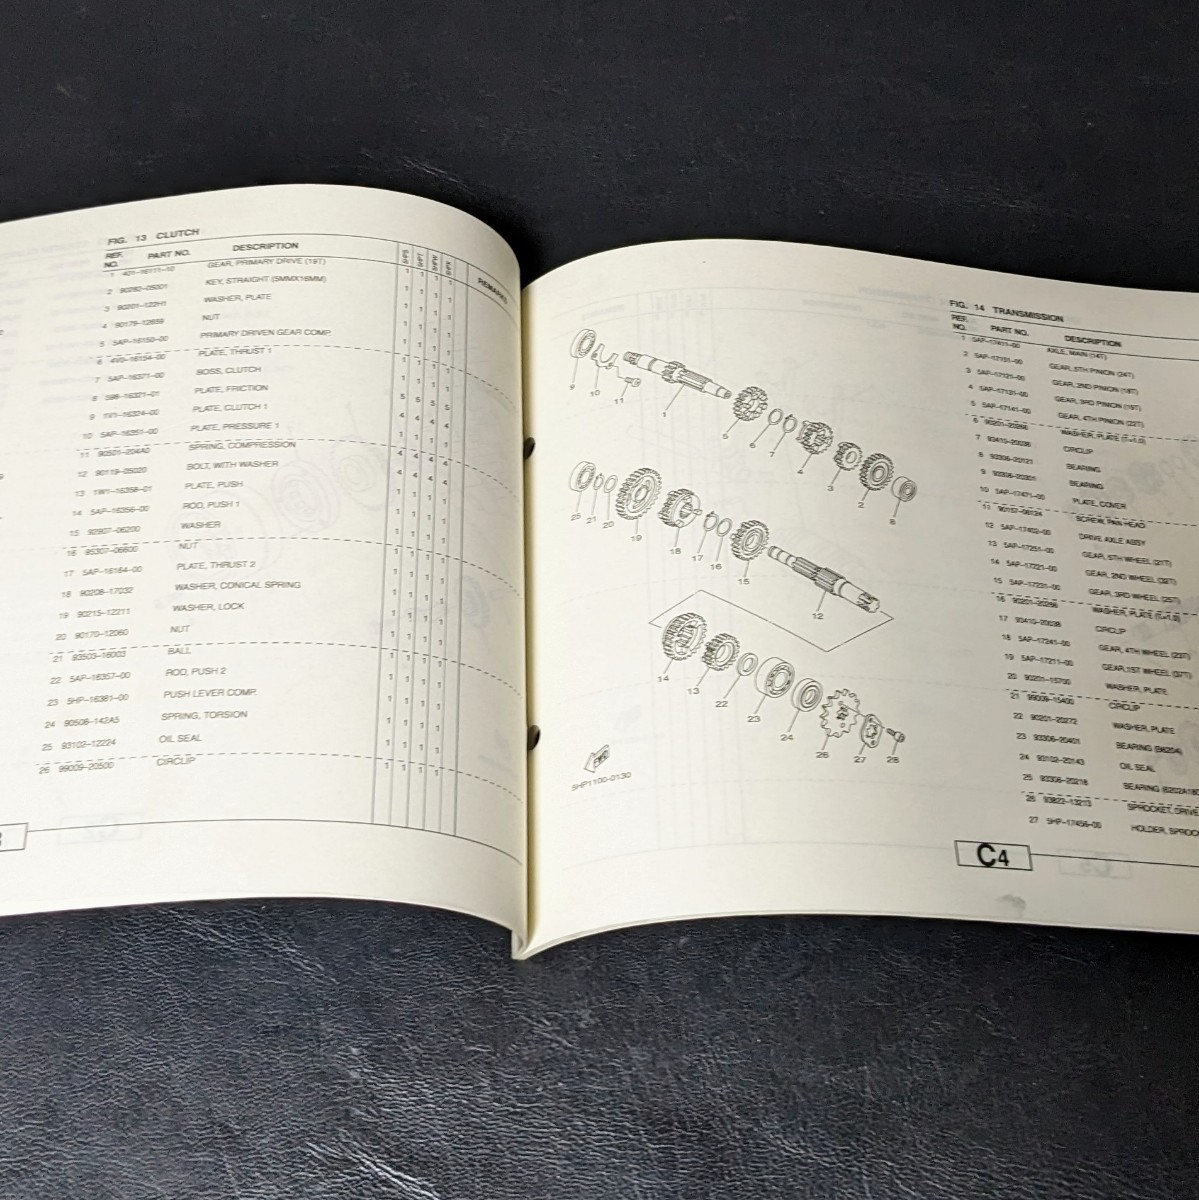 FIG. 13 CLUTCH
REF. NO. PART NO. DESCRIPTION REMARKS
1 401-16111-10 GEAR, PRIMARY DRIVE (19T) 1 1 1 1
2 90282-05001 KEY, STRAIGHT (5MMX16MM) 1 1 1 1
3 90201-122H1 WASHER, PLATE 1 1 1 1
4 90179-12659 NUT 1 1 1 1
5 5AP-16150-00 PRIMARY DRIVEN GEAR COMP. 1 1 1 1
6 4V0-16154-00 PLATE, THRUST 1 1 1 1 1
7 5AP-16371-00 BOSS, CLUTCH 1 1 1 1
8 598-16321-01 PLATE, FRICTION 5 5 5 5
9 1W1-16324-00 PLATE, CLUTCH 1 4 4 4 4
10 5AP-16351-00 PLATE, PRESSURE 1 1 1 1 1
11 90501-204A0 SPRING, COMPRESSION 4 4 4 4
12 90119-05020 BOLT, WITH WASHER 4 4 4 4
13 1W1-16358-01 PLATE, PUSH 1 1 1 1
14 5AP-16356-00 ROD, PUSH 1 1 1 1 1
15 92907-06200 WASHER 1 1 1 1
16 95307-06600 NUT 1 1 1 1
17 5AP-16164-00 PLATE, THRUST 2 1 1 1 1
18 90208-17032 WASHER, CONICAL SPRING 1 1 1 1
19 90215-12211 WASHER, LOCK 1 1 1 1
20 90170-12060 NUT 1 1 1 1
21 93503-16003 BALL 1 1 1 1
22 5AP-16357-00 ROD, PUSH 2 1 1 1 1
23 5HP-16381-00 PUSH LEVER COMP. 1 1 1 1
24 90508-142A5 SPRING, TORSION 1 1 1 1
25 93102-12224 OIL SEAL 1 1 1 1
26 99009-20500 CIRCLIP 1 1 1 1
FIG. 14 TRANSMISSION
REF. NO. PART NO. DESCRIPTION
1 5AP-17411-00 AXLE, MAIN (14T)
2 5AP-17151-00 GEAR, 5TH PINION (24T)
3 5AP-17121-00 GEAR, 2ND PINION (18T)
4 5AP-17131-00 GEAR, 3RD PINION (19T)
5 5AP-17141-00 GEAR, 4TH PINION (22T)
6 90201-20266 WASHER, PLATE (T=1.0)
7 93410-20038 CIRCLIP
8 93306-20121 BEARING
9 93306-20301 BEARING
10 5AP-17471-00 PLATE, COVER
11 90157-06124 SCREW, PAN HEAD
12 5AP-17402-00 DRIVE AXLE ASSY
13 5AP-17251-00 GEAR, 5TH WHEEL (21T)
14 5AP-17221-00 GEAR, 2ND WHEEL (32T)
15 5AP-17231-00 GEAR, 3RD WHEEL (25T)
16 90201-20266 WASHER, PLATE (T=1.0)
17 93410-20038 CIRCLIP
18 5AP-17241-00 GEAR, 4TH WHEEL (23T)
19 5AP-17211-00 GEAR, 1ST WHEEL (37T)
20 90201-15700 WASHER, PLATE
21 99009-15400 CIRCLIP
22 90201-20272 WASHER, PLATE
23 93306-20401 BEARING (B6204)
24 93102-20143 OIL SEAL
25 93306-20218 BEARING
26 93822-13213 SPROCKET, DRIVE
27 5HP-17456-00 HOLDER,
9
10
11
1
5
6
7
4
3
2
8
25
21
20
19
18
17
16
15
12
14
13
22
23
24
26
27
28
FWD
5HP1100-0130
C4